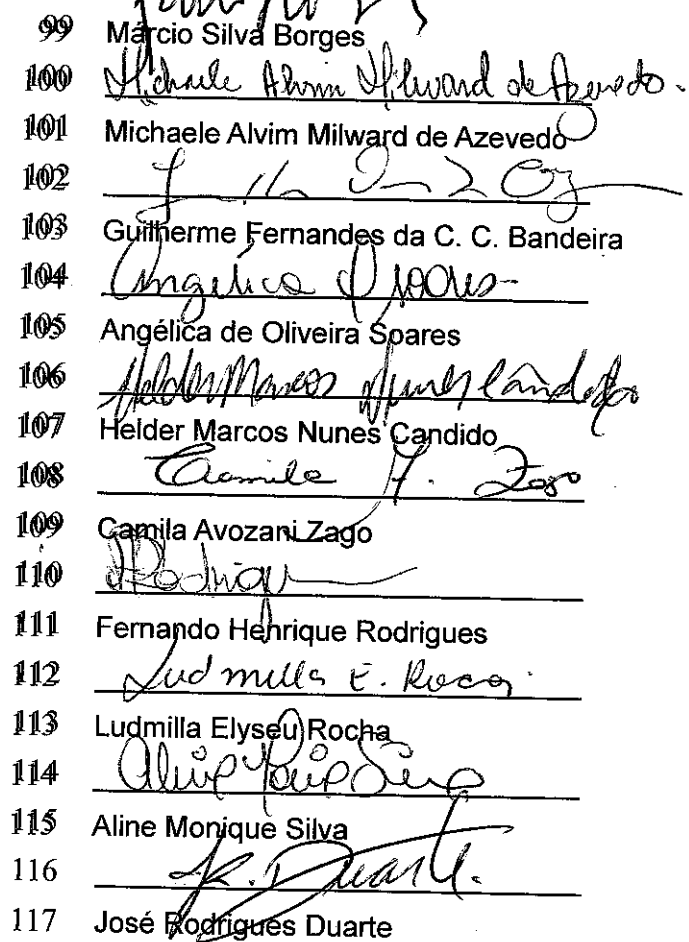 99 Márcio Silva Borges
100 Michaele Alvim Milward de Azevedo.
101 Michaele Alvim Milward de Azevedo
102
103 Guilherme Fernandes da C. C. Bandeira
104 Angélica
105 Angélica de Oliveira Soares
106 Helder Marcos Nunes Candido
107 Helder Marcos Nunes Candido
108 Camila A. Zago
109 Camila Avozani Zago
110 Rodrigu
111 Fernando Henrique Rodrigues
112 Ludmilla E. Rocha
113 Ludmilla Elyseu Rocha
114
115 Aline Monique Silva
116 JR. Duarte.
117 José Rodrigues Duarte